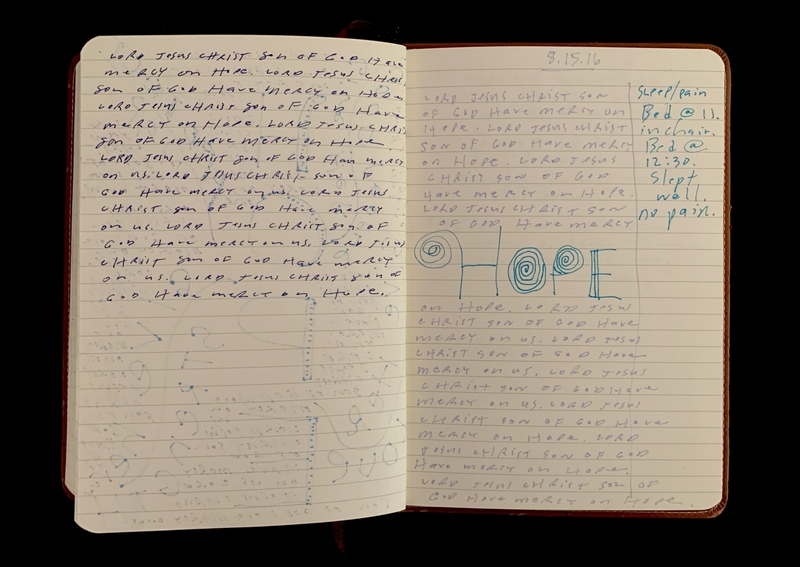 LORD JESUS CHRIST SON OF GOD HAVE
MERCY ON HOPE. LORD JESUS CHRIST
SON OF GOD HAVE MERCY ON HOPE
LORD JESUS CHRIST SON OF GOD HAVE
MERCY ON HOPE. LORD JESUS CHRIST
SON OF GOD HAVE MERCY ON HOPE
LORD JESUS CHRIST SON OF GOD HAVE MERCY
ON US. LORD JESUS CHRIST SON OF
GOD HAVE MERCY ON US. LORD JESUS
CHRIST SON OF GOD HAVE MERCY
ON US. LORD JESUS CHRIST SON OF
GOD HAVE MERCY ON US. LORD JESUS
CHRIST SON OF GOD HAVE MERCY
ON US. LORD JESUS CHRIST SON OF
GOD HAVE MERCY ON HOPE.
8.15.16
LORD JESUS CHRIST SON
OF GOD HAVE MERCY ON
HOPE. LORD JESUS CHRIST
SON OF GOD HAVE MERCY
ON HOPE. LORD JESUS
CHRIST SON OF GOD
HAVE MERCY ON HOPE.
LORD JESUS CHRIST SON
OF GOD HAVE MERCY
HOPE
ON HOPE. LORD JESUS
CHRIST SON OF GOD HAVE
MERCY ON US. LORD JESUS
CHRIST SON OF GOD HAVE
MERCY ON US. LORD JESUS
CHRIST SON OF GOD HAVE
MERCY ON US. LORD JESUS
CHRIST SON OF GOD HAVE
MERCY ON HOPE. LORD
JESUS CHRIST SON OF GOD
HAVE MERCY ON HOPE.
LORD JESUS CHRIST SON OF
GOD HAVE MERCY ON HOPE.
Sleep/pain
Bed @ 11.
in chair.
Bed @
12:30.
Slept
well.
no pain.